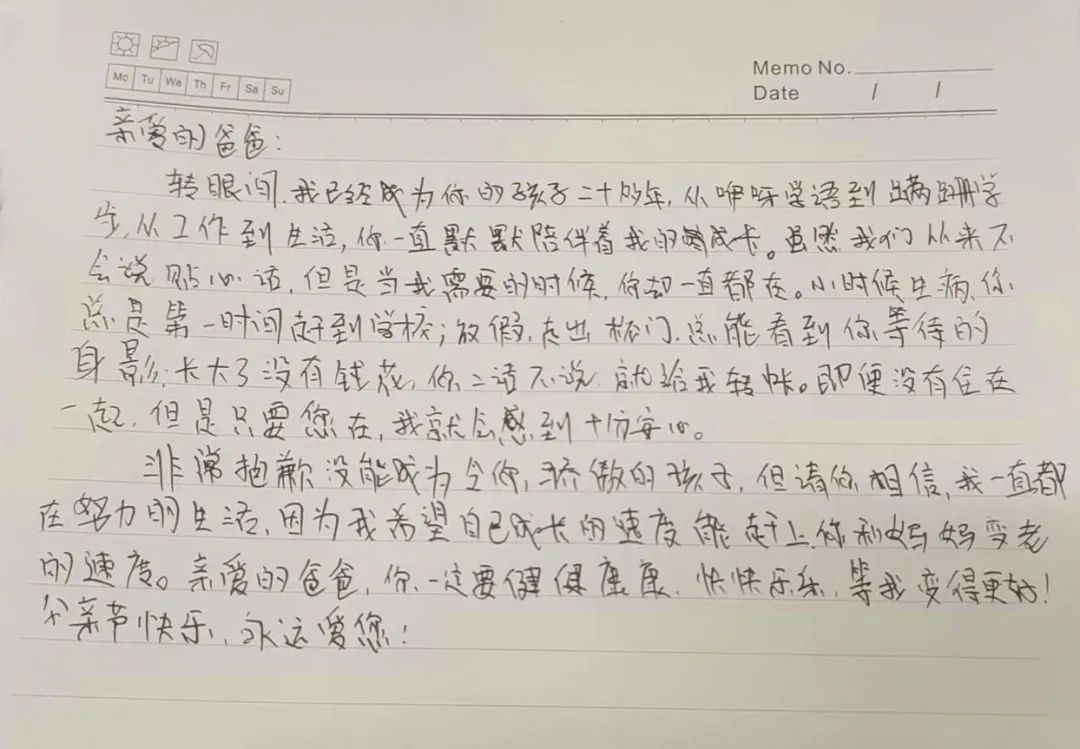 Mo Tu We Th Fr Sa Su
Memo No.
Date / /
亲爱的爸爸:
转眼间,我已经成为你的孩子二十多年,从咿呀学语到蹒跚学
步,从工作到生活,你一直默默陪伴着我的成长。虽然我们从来不
会说贴心话,但是当我需要的时候,你却一直都在。小时候生病,你
总是第一时间赶到学校;放假,走出校门,总能看到你等待的
身影;长大了没有钱花,你二话不说,就给我转账。即便没有住在
一起,但是只要您在,我就会感到十分安心。
非常抱歉没能成为令你骄傲的孩子,但请你相信,我一直都
在努力的生活,因为我希望自己成长的速度能赶上你和妈妈变老
的速度。亲爱的爸爸,你一定要健健康康,快快乐乐,等我变得更好!
父亲节快乐,永远爱您!